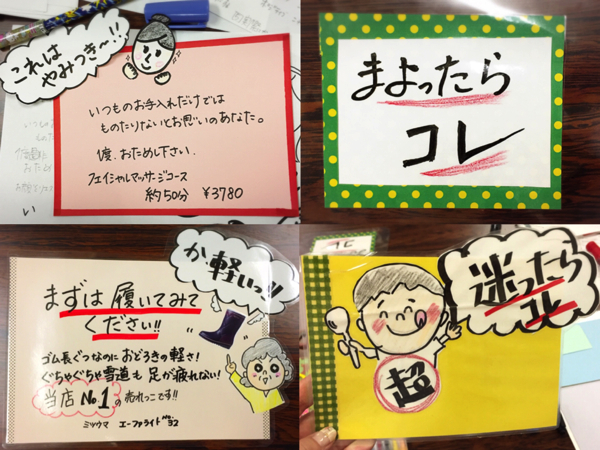 これは
やみつき〜!!
いつものお手入れだけでは
ものたりないとお思いのあなた。
1度、おためし下さい.
フェイシャルマッサージコース
約50分 ¥3780
まよったら
コレ
か、軽いっ!!
まずは履いてみて
ください!!
ゴム長ぐつなのにおどろきの軽さ!
ぐちゃぐちゃ雪道も足が疲れない!
当店No.1の売れっこです!!
ミツウマ エーファライトNo.32
迷ったら
コレ
超